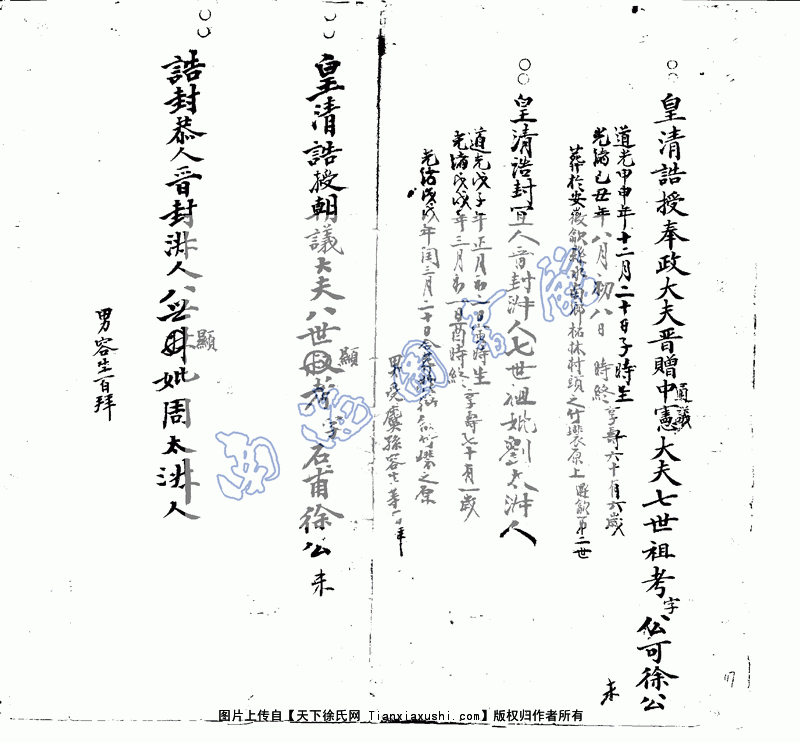 皇清誥授奉政大夫晋贈中憲大夫七世祖考字仏可徐公
通議
未
道光甲申年十二月二十日子時生
光緒己丑年八月初八日 時終享壽六十有六歲
葬於安徽歙縣水南鄉柘林村頭之竹裴原上遷歙第二世
皇清誥封宜人晋封淋人七世祖妣劉太淋人
道光戊子年正月初一日寅時生
光緒戊戌年三月初一日酉時終享壽七十有一歲
光緒戊戌年閏三月二十日合葬 竹裴之原
男 孫容生等百拜
皇清誥授朝議大夫八世顯考字石甫徐公
未
誥封恭人晋封淋人八世顯妣周太淋人
男容生百拜
117
图片上传自【天下徐氏网 Tianxiaxushi.com】版权归作者所有